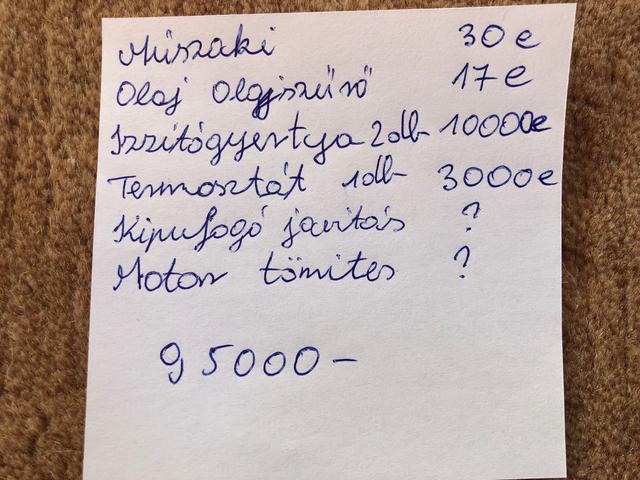 Műszaki 30 e
Olaj Olajszűrő 17 e
Izzítógyertya 2db 10000e
Termosztát 1db 3000e
Kipufogó javitás ?
Motor tömites ?
95000-